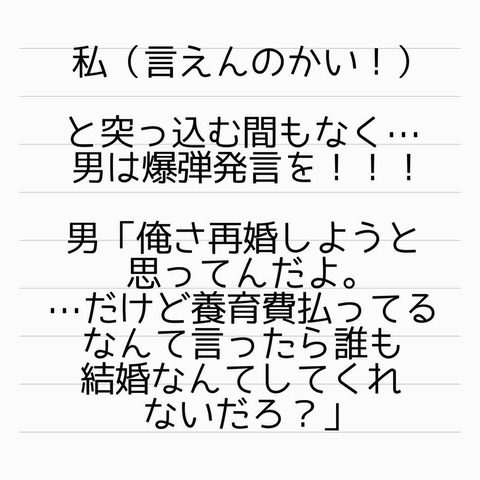 私（言えんのかい！）
と突っ込む間もなく…
男は爆弾発言を！！！
男「俺さ再婚しようと
思ってんだよ。
…だけど養育費払ってる
なんて言ったら誰も
結婚なんてしてくれ
ないだろ？」